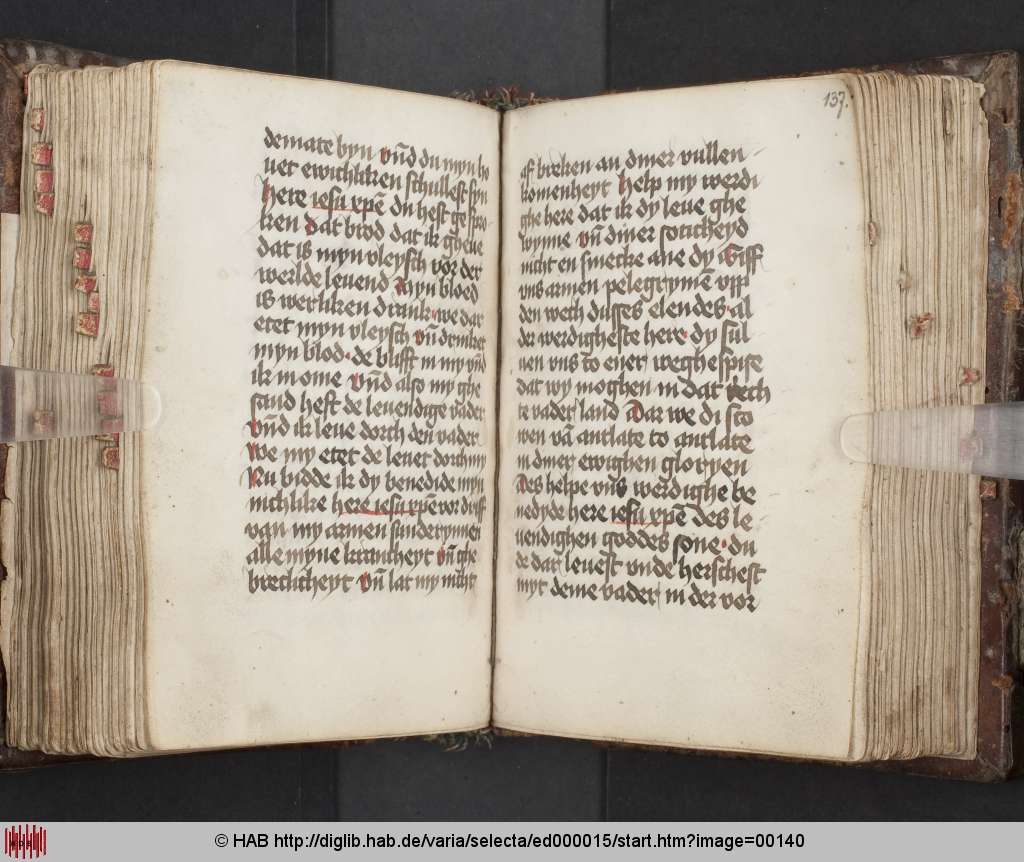 demate byn vn̄d du myn ho
uet ewichliken schullest syn
here iesu xpē du hest ge spro
ken dat brod dat ik gheue
dat is myn vleysch vor der
werlde leuend Myn bloed
is werliken drank · we dar
etet myn vleysch vn̄ drinket
myn blod · de blifft in my vn̄d
ik in ome vn̄d also my ghe
sand heft de leuendige vader
vn̄d ik leue dorch den vader
we my etet de leuet dorch my
Nu bidde ik dy benedide myn
nichlike here iesu xpē vor driff
van my armen sunderynnen
alle myne kranckeyt vn̄ ghe
brecklicheyt vn̄ lat my nicht
137.
af breken an diner vullen
komenheyt help my werdi
ghe here dat ik dy leue ghe
wynne vn̄ diner soticheyd
nicht en smecke ane dy Giff
vns armen pelegrymē vpp
den wech dusses elendes · al
der werdigheste here · dy sul
uen vns to ener weghespise
dat wy moghen in dat rech
te vader land Dar we di sco
wen vā antlate to antlate
in diner ewighen gloryen
Des helpe vns werdighe be
nedyde here iesu xpē des le
uendighen goddes sone · du
de dar leuest vnde herschest
myt deme vader in der vor
© HAB http://diglib.hab.de/varia/selecta/ed000015/start.htm?image=00140